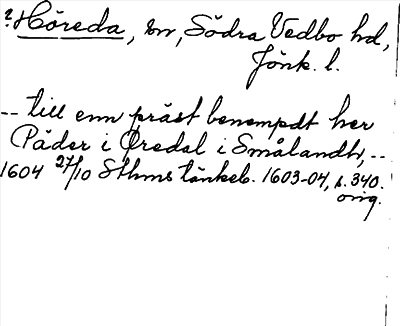 ? Höreda, sn, Södra Vedbo hd,
Jönk. l.
-- till enn präst benempdt her
Päder i Øredal i Smålandh, --
1604 27/10 Sthms tänkeb. 1603-04, s. 340.
orig.